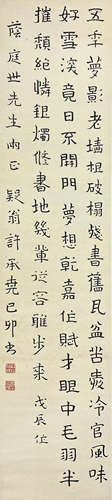 五年夢影老墻根破榻殘書舊瓦盆嘗處冷官風味
好雪渓竟日不開門夢想乾嘉佐賦才眼中毛羽半
摧頹絕憐鉏燭修書地幾輩從容雅步來 戊辰作
蔭庭世先生兩正 疑翁許承堯己卯书